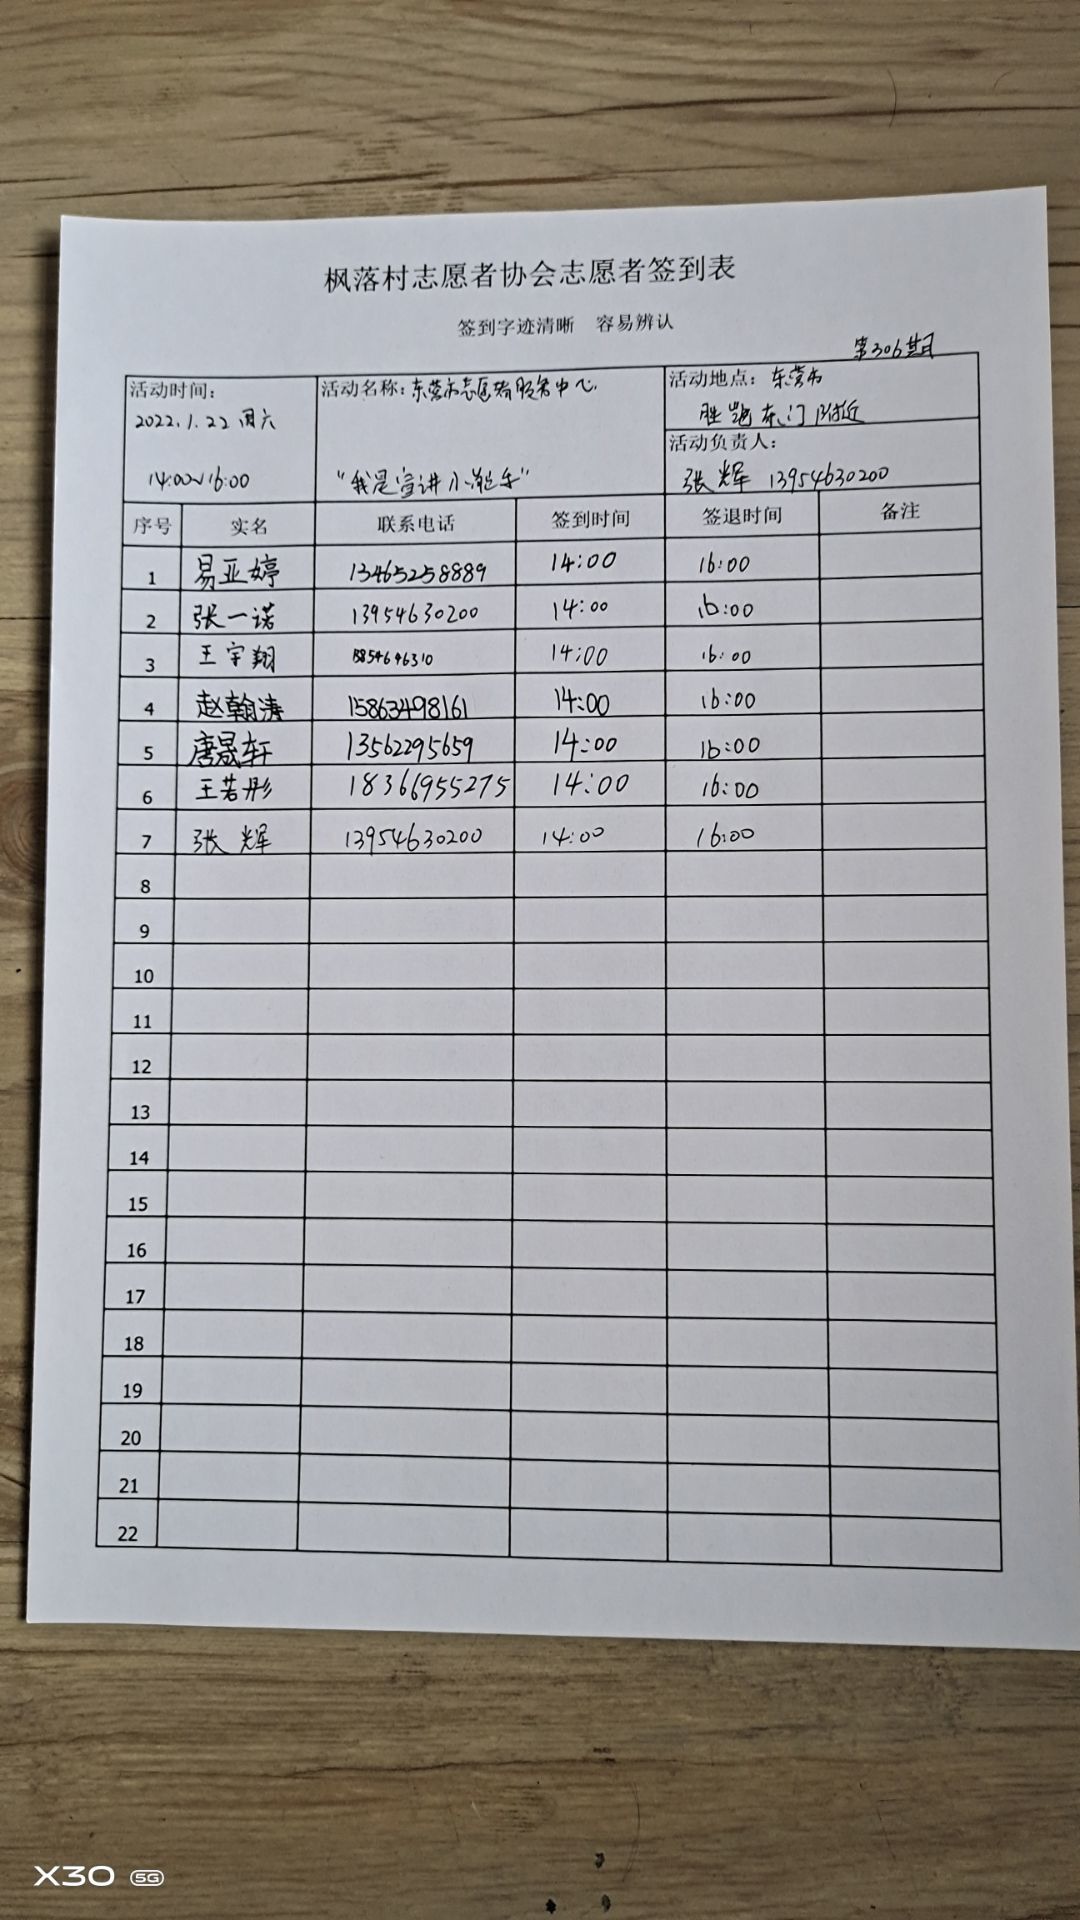 枫落村志愿者协会志愿者签到表
签到字迹清晰 容易辨认
第306期
活动时间: 活动名称:东营市志愿者服务中心 活动地点: 东营市
2022.1.22 周六 东门附近
活动负责人:
14:00~16:00 "我是宣讲小能手" 张辉 13954630200
序号 实名 联系电话 签到时间 签退时间 备注
1 易亚婷 13465258889 14:00 16:00
2 张一诺 13954630200 14:00 16:00
3 王宇翔 14:00 16:00
4 赵翰涛 15863498161 14:00 16:00
5 唐晟轩 13562295659 14:00 16:00
6 王若彤 18366955275 14:00 16:00
7 张辉 13954630200 14:00 16:00
8
9
10
11
12
13
14
15
16
17
18
19
20
21
22
X30 5G